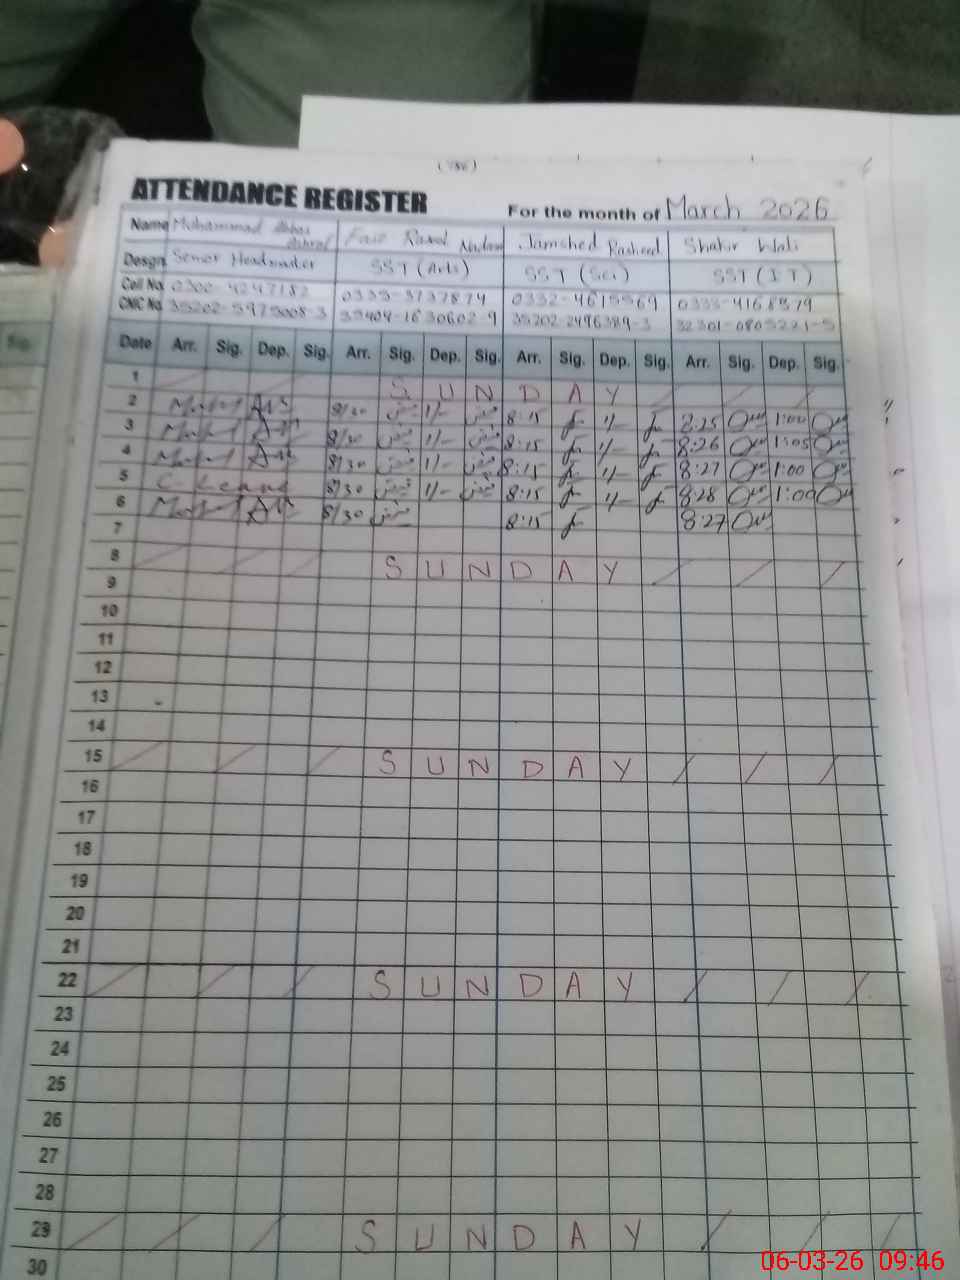 ATTENDANCE REGISTER For the month of March 2026
Name Muhammad Abbas Ashraf Faiz Rasul Nadeem Jamshed Rasheed Shahir Wali
Desgn Senior Headmaster SST (Arts) SST (Sci) SST (IT)
Cell No 0300-4247182 0333-3737874 0332-4615569 0333-4168579
CNIC No 35202-5975008-3 35404-1630602-9 35202-2496389-3 32301-0805221-5
Date Arr. Sig. Dep. Sig. Arr. Sig. Dep. Sig. Arr. Sig. Dep. Sig. Arr. Sig. Dep. Sig.
1 SUNDAY
2 8/30 1/- 8:15 1/- 8:25 1:00
3 8/30 1/- 8:15 1/- 8:26 1:05
4 8/30 1/- 8:15 1/- 8:27 1:00
5 C. Leave 8/30 1/- 8:15 1/- 8:28 1:00
6 8/30 8:15 8:27
7
8 SUNDAY
9
10
11
12
13
14
15 SUNDAY
16
17
18
19
20
21
22 SUNDAY
23
24
25
26
27
28
29 SUNDAY
30
06-03-26 09:46